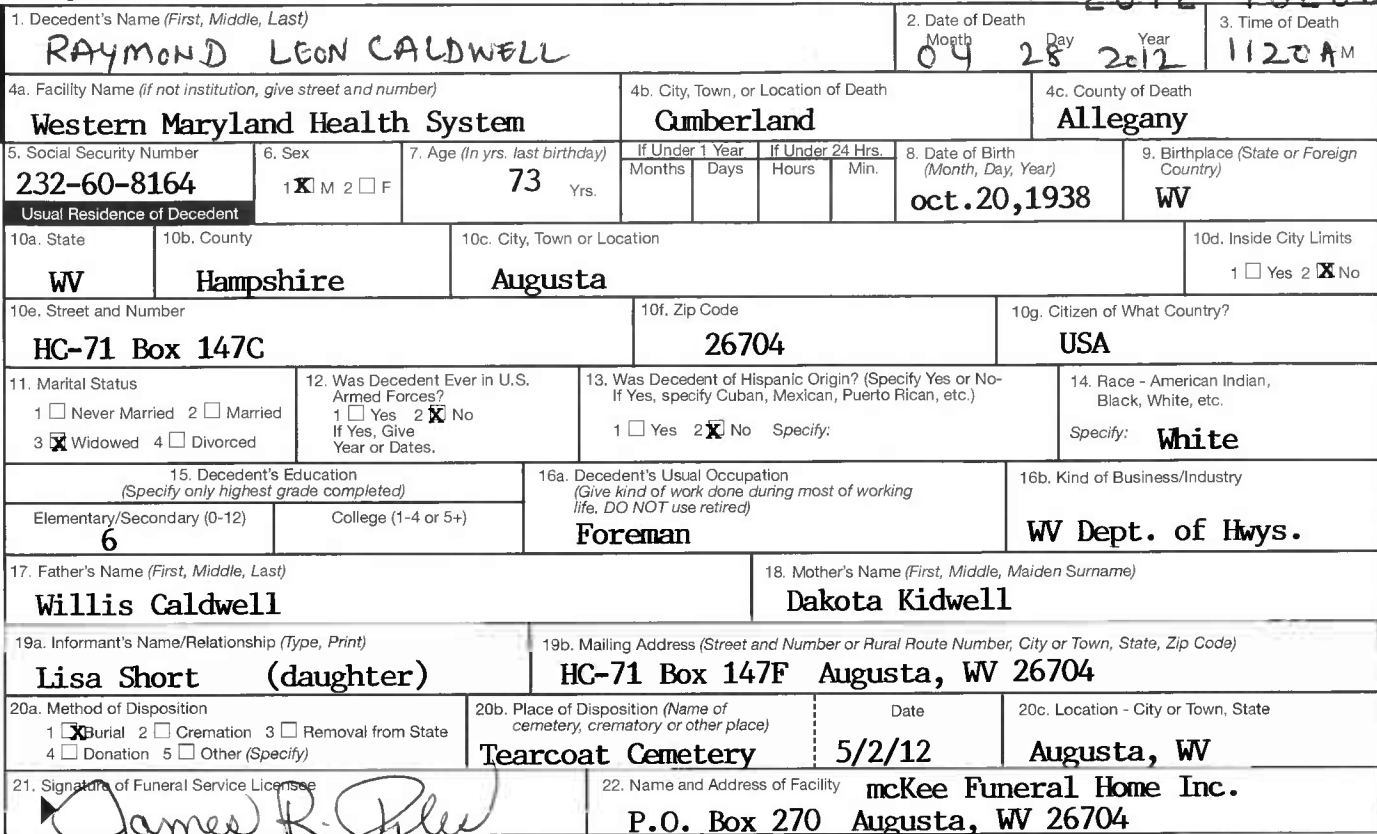 1. Decedent's Name (First, Middle, Last)
RAYMOND LEON CALDWELL
2. Date of Death
Month Day Year
04 28 2012
3. Time of Death
1120 A M
4a. Facility Name (if not institution, give street and number)
Western Maryland Health System
4b. City, Town, or Location of Death
Cumberland
4c. County of Death
Allegany
5. Social Security Number
232-60-8164
6. Sex
1 X M 2 ☐ F
7. Age (In yrs. last birthday)
73 Yrs.
If Under 1 Year
Months Days
If Under 24 Hrs.
Hours Min.
8. Date of Birth
(Month, Day, Year)
oct.20,1938
9. Birthplace (State or Foreign
Country)
WV
Usual Residence of Decedent
10a. State
WV
10b. County
Hampshire
10c. City, Town or Location
Augusta
10d. Inside City Limits
1 ☐ Yes 2 X No
10e. Street and Number
HC-71 Box 147C
10f. Zip Code
26704
10g. Citizen of What Country?
USA
11. Marital Status
1 ☐ Never Married 2 ☐ Married
3 X Widowed 4 ☐ Divorced
12. Was Decedent Ever in U.S.
Armed Forces?
1 ☐ Yes 2 X No
If Yes, Give
Year or Dates.
13. Was Decedent of Hispanic Origin? (Specify Yes or No-
If Yes, specify Cuban, Mexican, Puerto Rican, etc.)
1 ☐ Yes 2 X No Specify:
14. Race - American Indian,
Black, White, etc.
Specify: White
15. Decedent's Education
(Specify only highest grade completed)
Elementary/Secondary (0-12)
6
College (1-4 or 5+)
16a. Decedent's Usual Occupation
(Give kind of work done during most of working
life. DO NOT use retired)
Foreman
16b. Kind of Business/Industry
WV Dept. of Hwys.
17. Father's Name (First, Middle, Last)
Willis Caldwell
18. Mother's Name (First, Middle, Maiden Surname)
Dakota Kidwell
19a. Informant's Name/Relationship (Type, Print)
Lisa Short (daughter)
19b. Mailing Address (Street and Number or Rural Route Number, City or Town, State, Zip Code)
HC-71 Box 147F Augusta, WV 26704
20a. Method of Disposition
1 X Burial 2 ☐ Cremation 3 ☐ Removal from State
4 ☐ Donation 5 ☐ Other (Specify)
20b. Place of Disposition (Name of
cemetery, crematory or other place)
Tearcoat Cemetery
Date
5/2/12
20c. Location - City or Town, State
Augusta, WV
21. Signature of Funeral Service Licensee
James R.
22. Name and Address of Facility mcKee Funeral Home Inc.
P.O. Box 270 Augusta, WV 26704